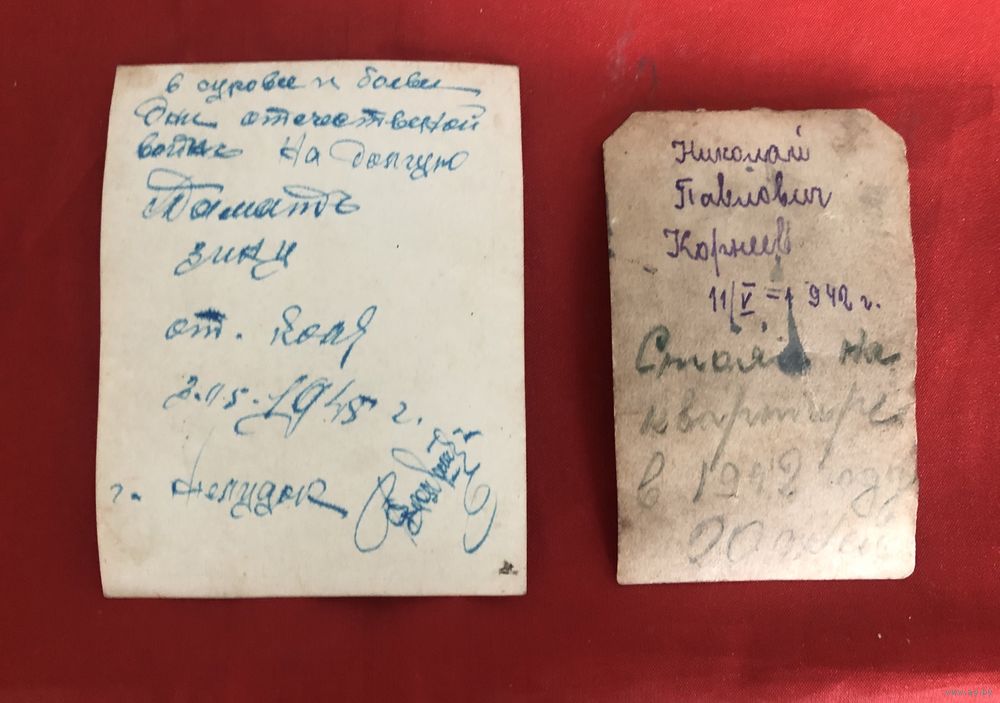 в суровые и боевы
Дни отечественой
войны На Долгую
Память
зины
от. Коли
г. Желудок
Николай
Павлович
Корнеев
11/V-1942 г.
Стоял На
квартире
в 1942 году
20
www.ay.by